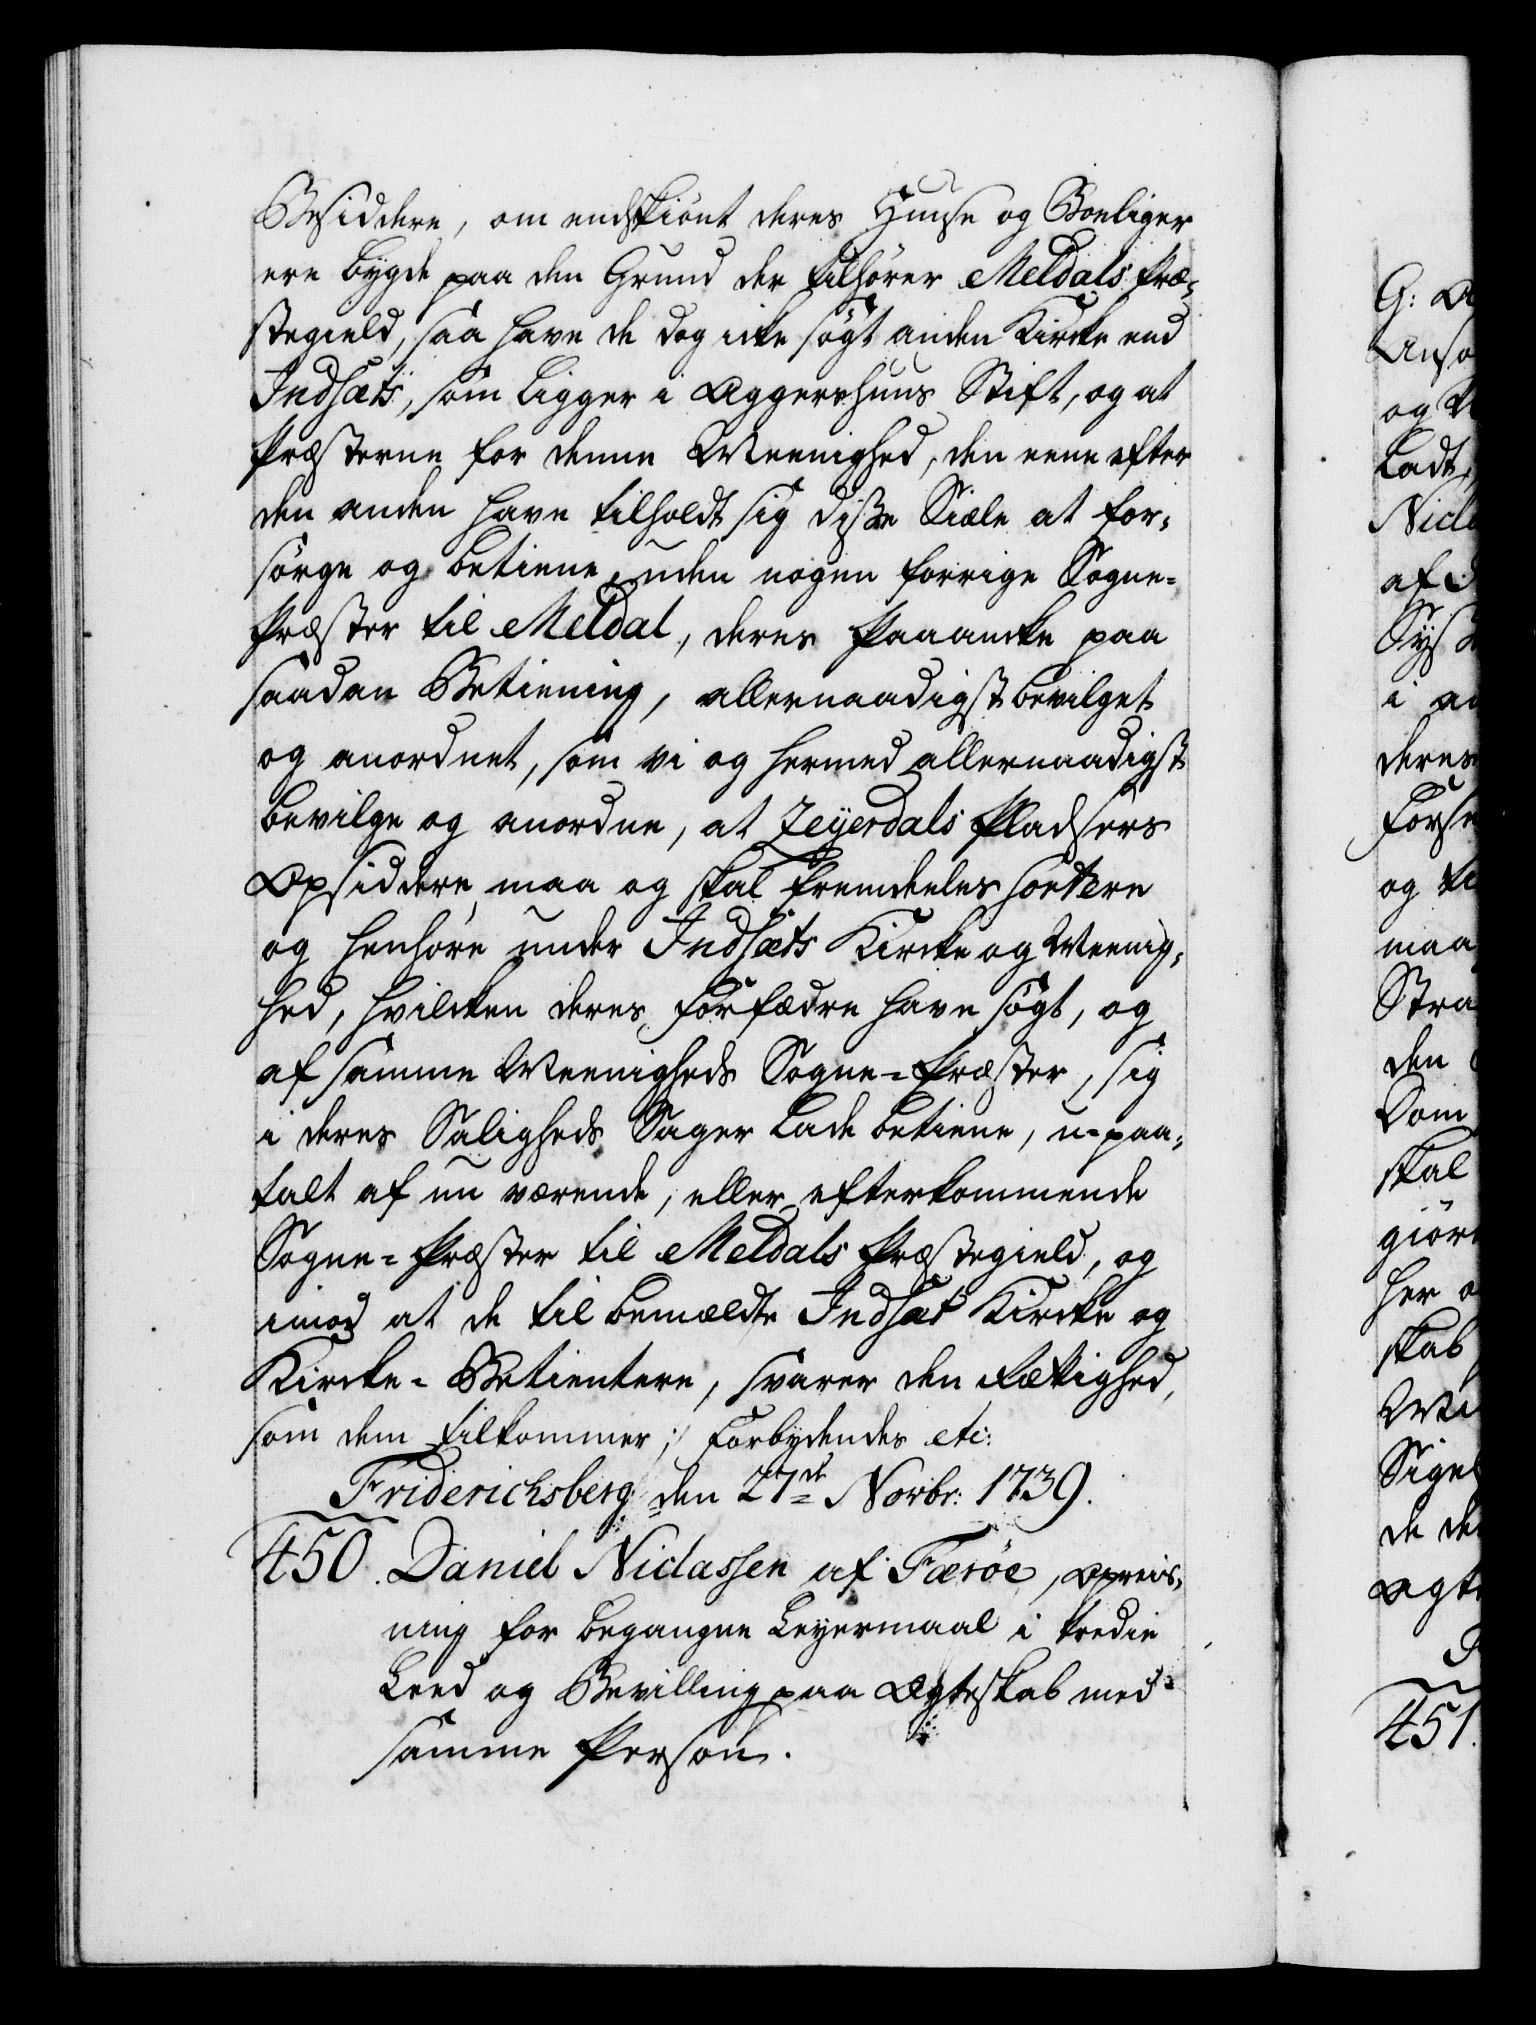 Besiddere, om endskiönt deres Huuse og Boeliger
ere bygde paa den Grund der tilhører Meldals Præ-
stegield, saa have de dog icke søgt anden Kircke end
Indsæts, som ligger i Aggershuus Stift, og at
Præsterne for denne Meenighed, den eene efter
den anden have tilholdt sig disse Siæle at for-
sørge og betiene, uden nogen forrige Sogne-
Præster til Meldal, deres Paaancke paa
saadan Betiening, allernaadigst bevilget
og anordnet, som vi og hermed allernaadigst
bevilge og anordne, at Zeyerdals Pladsers
Opsiddere maa og skal fremdeeles sortere
og henhøre under Indsæts Kircke og Meenig-
hed, hvilcken deres Forfædre have søgt, og
af samme Meenigheds Sogne-Præster, sig
i deres Saligheds Sager lade betiene, u-paa-
talt af nu værende, eller efterkommende
Sogne-Præster til Meldals Præstegield, og
imod at de til bemældte Indsæt Kircke og
Kircke-Betientere, svarer den Rettighed,
som dem tilkommer; Forbydendes etc:
Friderichsberg den 27de Novbr: 1739.
450. Daniel Niclassen af Færöe, Opreis-
ning for begangne Leyermaal i tredie
Leed og Bevilling paa Ægteskab med
samme Person.
G:
og
ladt
af
i
deres
og
maa
den
skal
giöre
her
skab
de
451.